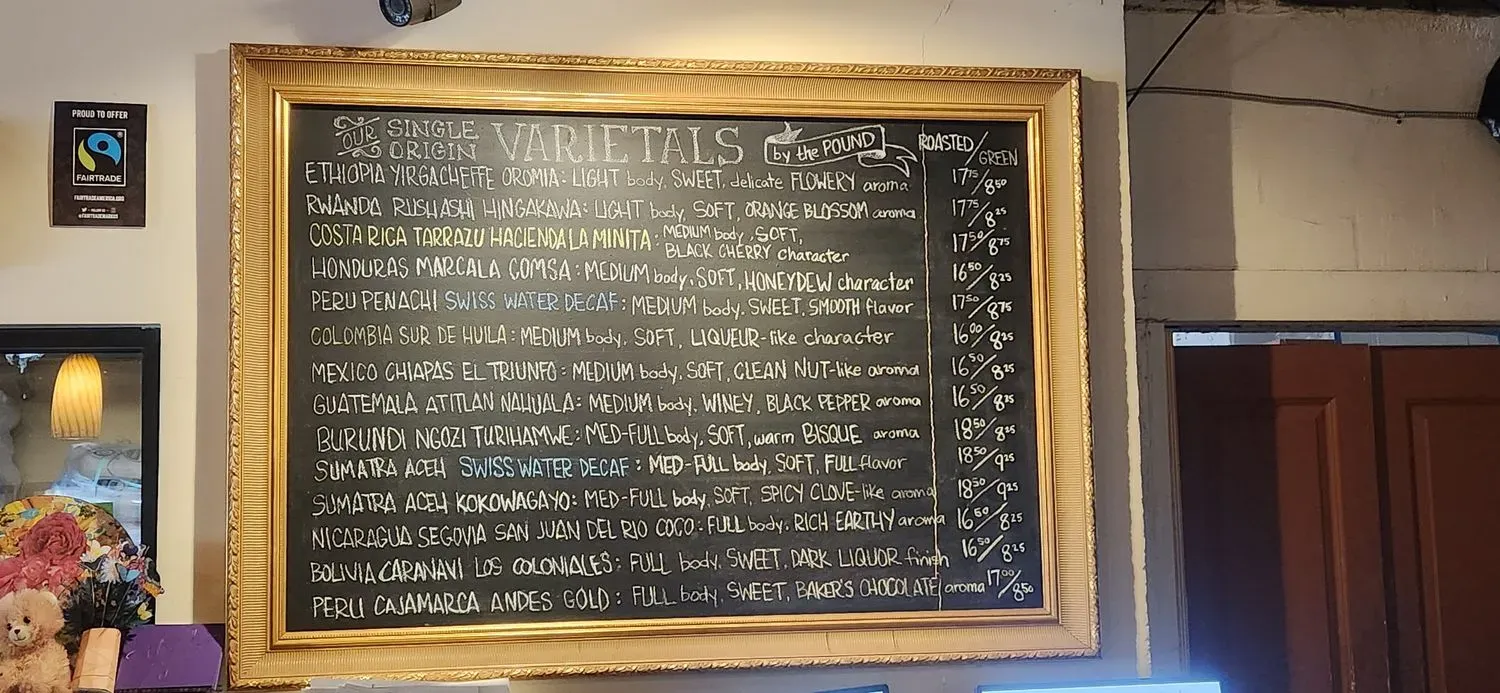 PROUD TO OFFER
FAIRTRADE
FAIRTRADEAMERICA.ORG
OUR SINGLE ORIGIN VARIETALS by the POUND ROASTED/GREEN
ETHIOPIA YIRGACHEFFE OROMIA: LIGHT body, SWEET, delicate FLOWERY aroma 17 75/8 50
RWANDA RUSHASHI HINGAKAWA: LIGHT body, SOFT, ORANGE BLOSSOM aroma 17 75/8 25
COSTA RICA TARRAZU HACIENDA LA MINITA: MEDIUM body, SOFT, 17 50/8 75
BLACK CHERRY character
HONDURAS MARCALA COMSA: MEDIUM body, SOFT, HONEYDEW character 16 50/8 25
PERU PENACHI SWISS WATER DECAF: MEDIUM body, SWEET, SMOOTH flavor 17 50/8 75
COLOMBIA SUR DE HUILA: MEDIUM body, SOFT, LIQUEUR-like character 16 00/8 25
MEXICO CHIAPAS EL TRIUNFO: MEDIUM body, SOFT, CLEAN NUT-like aroma 16 50/8 25
GUATEMALA ATITLAN NAHUALA: MEDIUM body, WINEY, BLACK PEPPER aroma 16 50/8 25
BURUNDI NGOZI TURIHAMWE: MED-FULL body, SOFT, warm BISQUE aroma 18 50/8 25
SUMATRA ACEH SWISS WATER DECAF: MED-FULL body, SOFT, FULL flavor 18 50/9 25
SUMATRA ACEH KOKOWAGAYO: MED-FULL body, SOFT, SPICY CLOVE-like aroma 18 50/9 25
NICARAGUA SEGOVIA SAN JUAN DEL RIO COCO: FULL body, RICH EARTHY aroma 16 50/8 25
BOLIVIA CARANAVI LOS COLONIALES: FULL body, SWEET, DARK LIQUOR finish 16 50/8 25
PERU CAJAMARCA ANDES GOLD: FULL body, SWEET, BAKER'S CHOCOLATE aroma 17 00/8 50